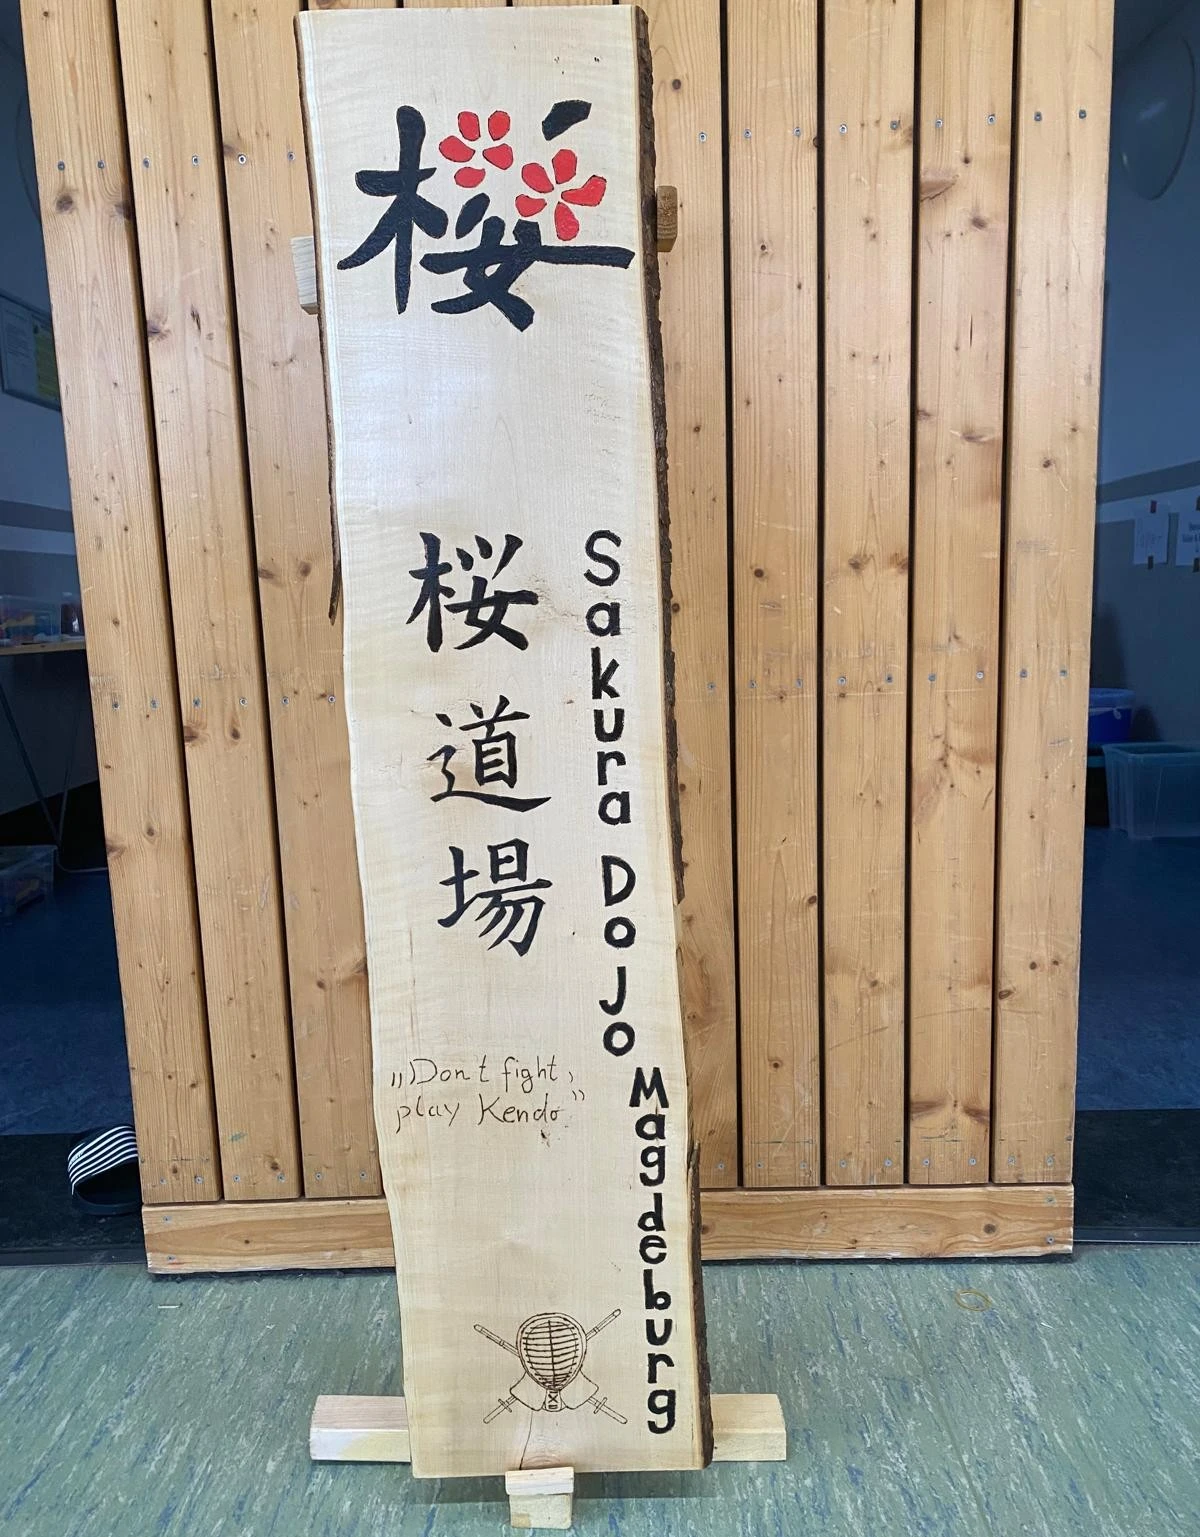 桜
桜道場
Sakura DoJo Magdeburg
„Don't fight,
play Kendo"